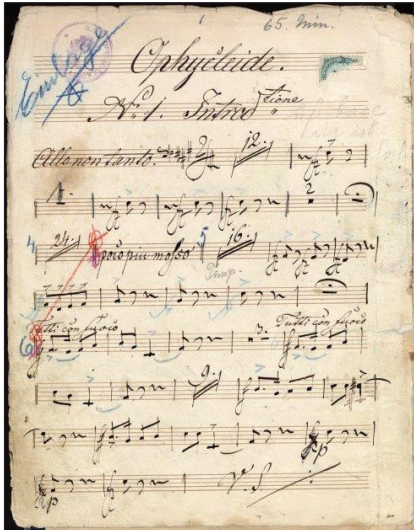 65. Min.
Einlage
Ophycleide.
No. 1. Introdtione
All° non tanto. 2 12.
1.
4 24. poco piu mosso 5 16.
Timp.
Tutti con fuoco Tutti con fuoco
6
9.
pp
pp V. S.